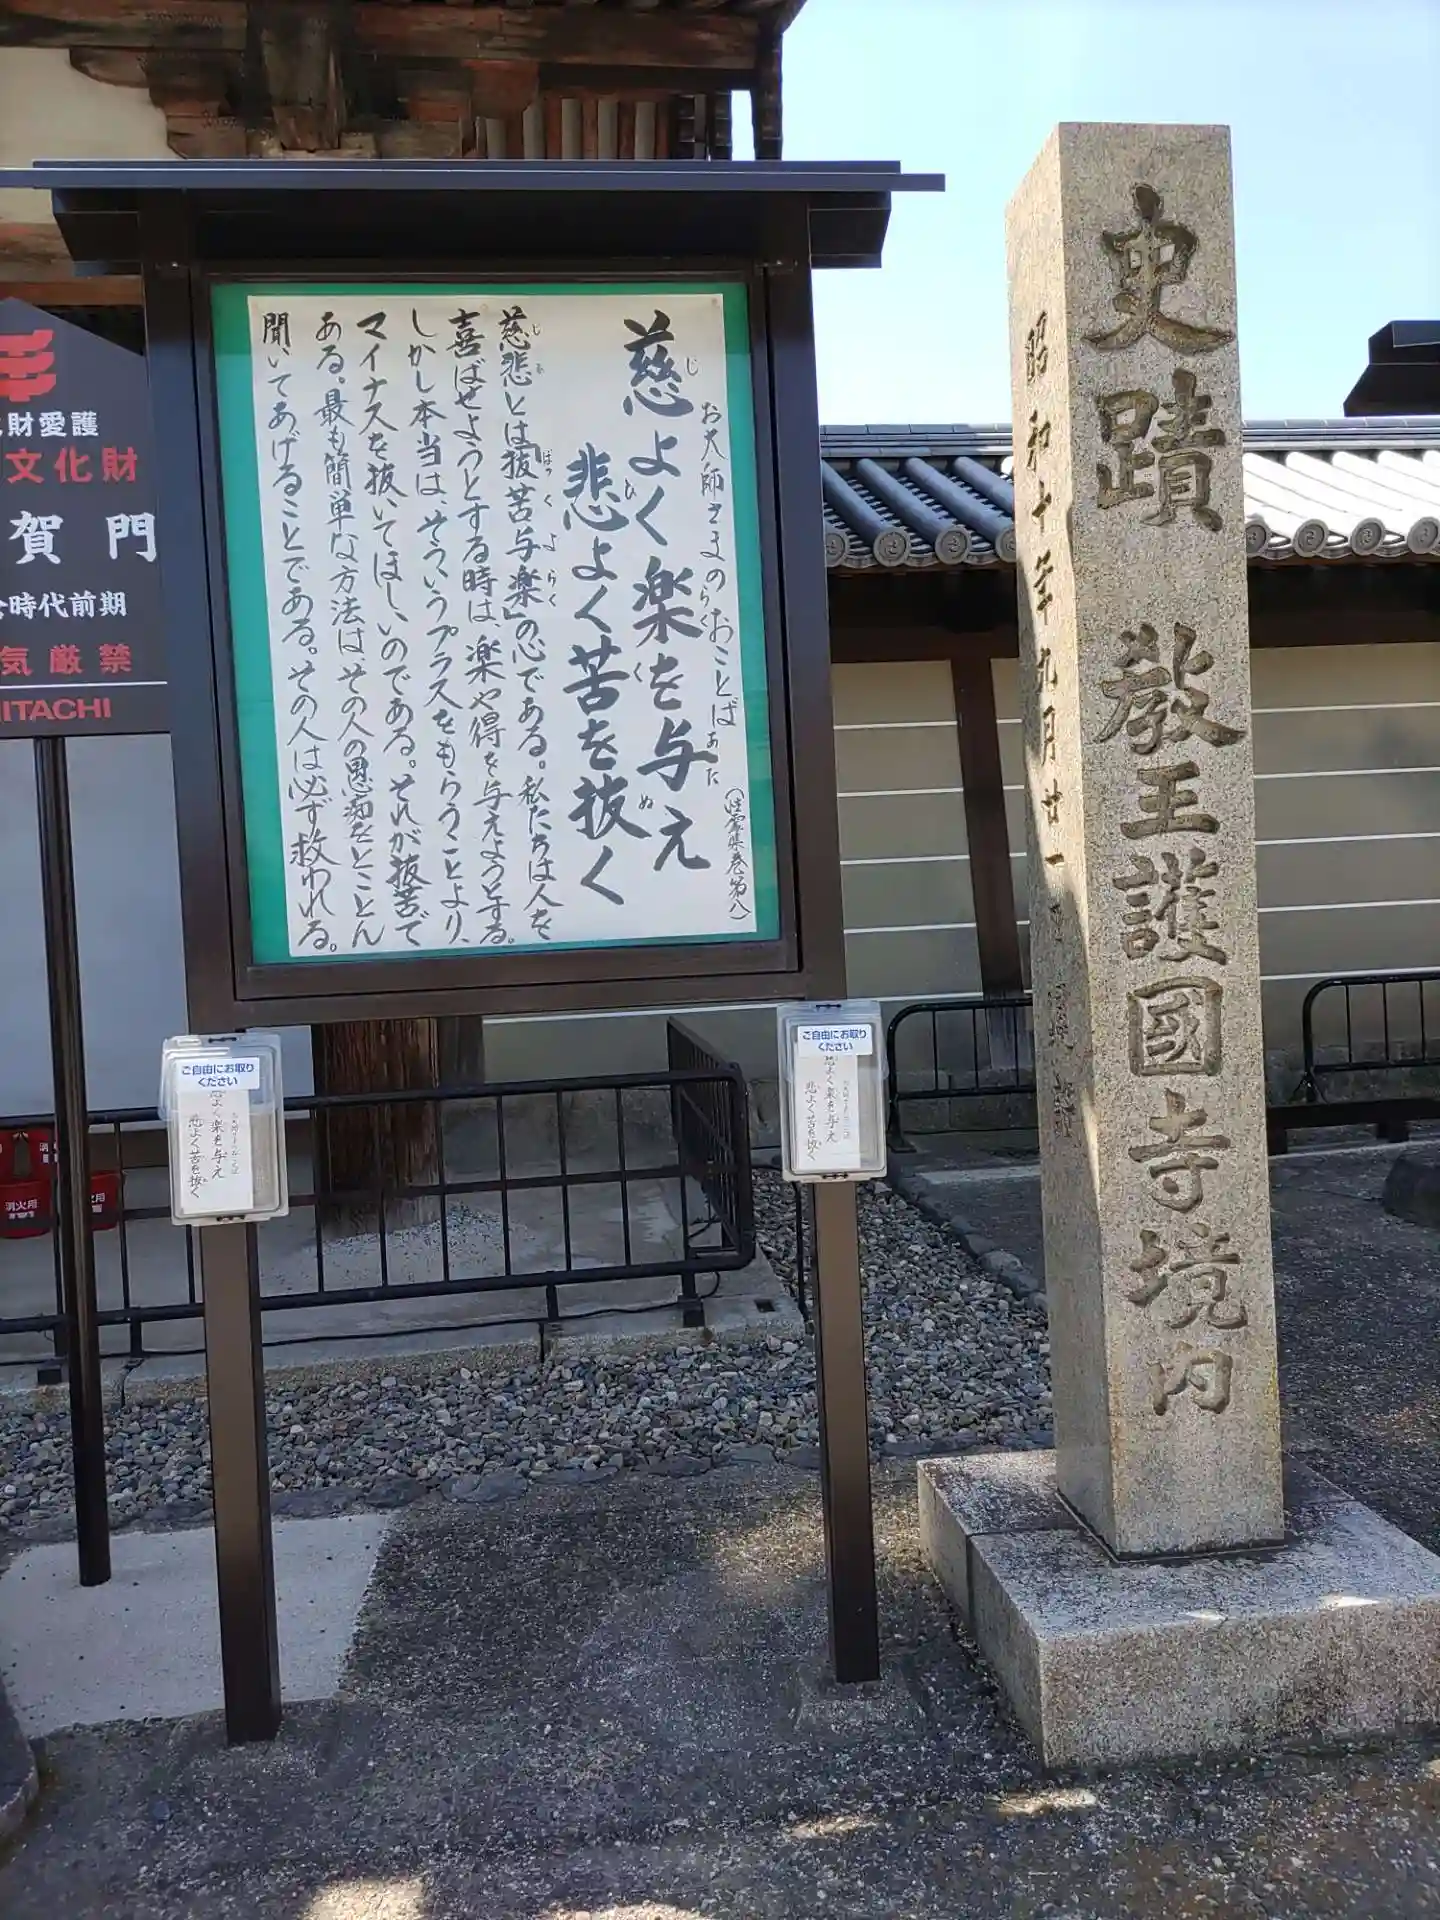 お大師さまのおことば
慈よく楽を与え
悲よく苦を抜く
(性霊集巻第八)
慈悲とは「抜苦与楽」の心である。私たちは人を
喜ばせようとする時は、楽や得を与えようとする。
しかし本当は、そういうプラスをもらうことより、
マイナスを抜いてほしいのである。それが抜苦で
ある。最も簡単な方法は、その人の愚痴をとことん
聞いてあげることである。その人は必ず救われる。
史蹟 教王護國寺境内
昭和十年九月廿一
財愛護
文化財
賀門
時代前期
気厳禁
HITACHI
ご自由にお取り
ください
慈よく楽を与え
悲よく苦を抜く
ご自由にお取り
ください
慈よく楽を与え
悲よく苦を抜く
消火用